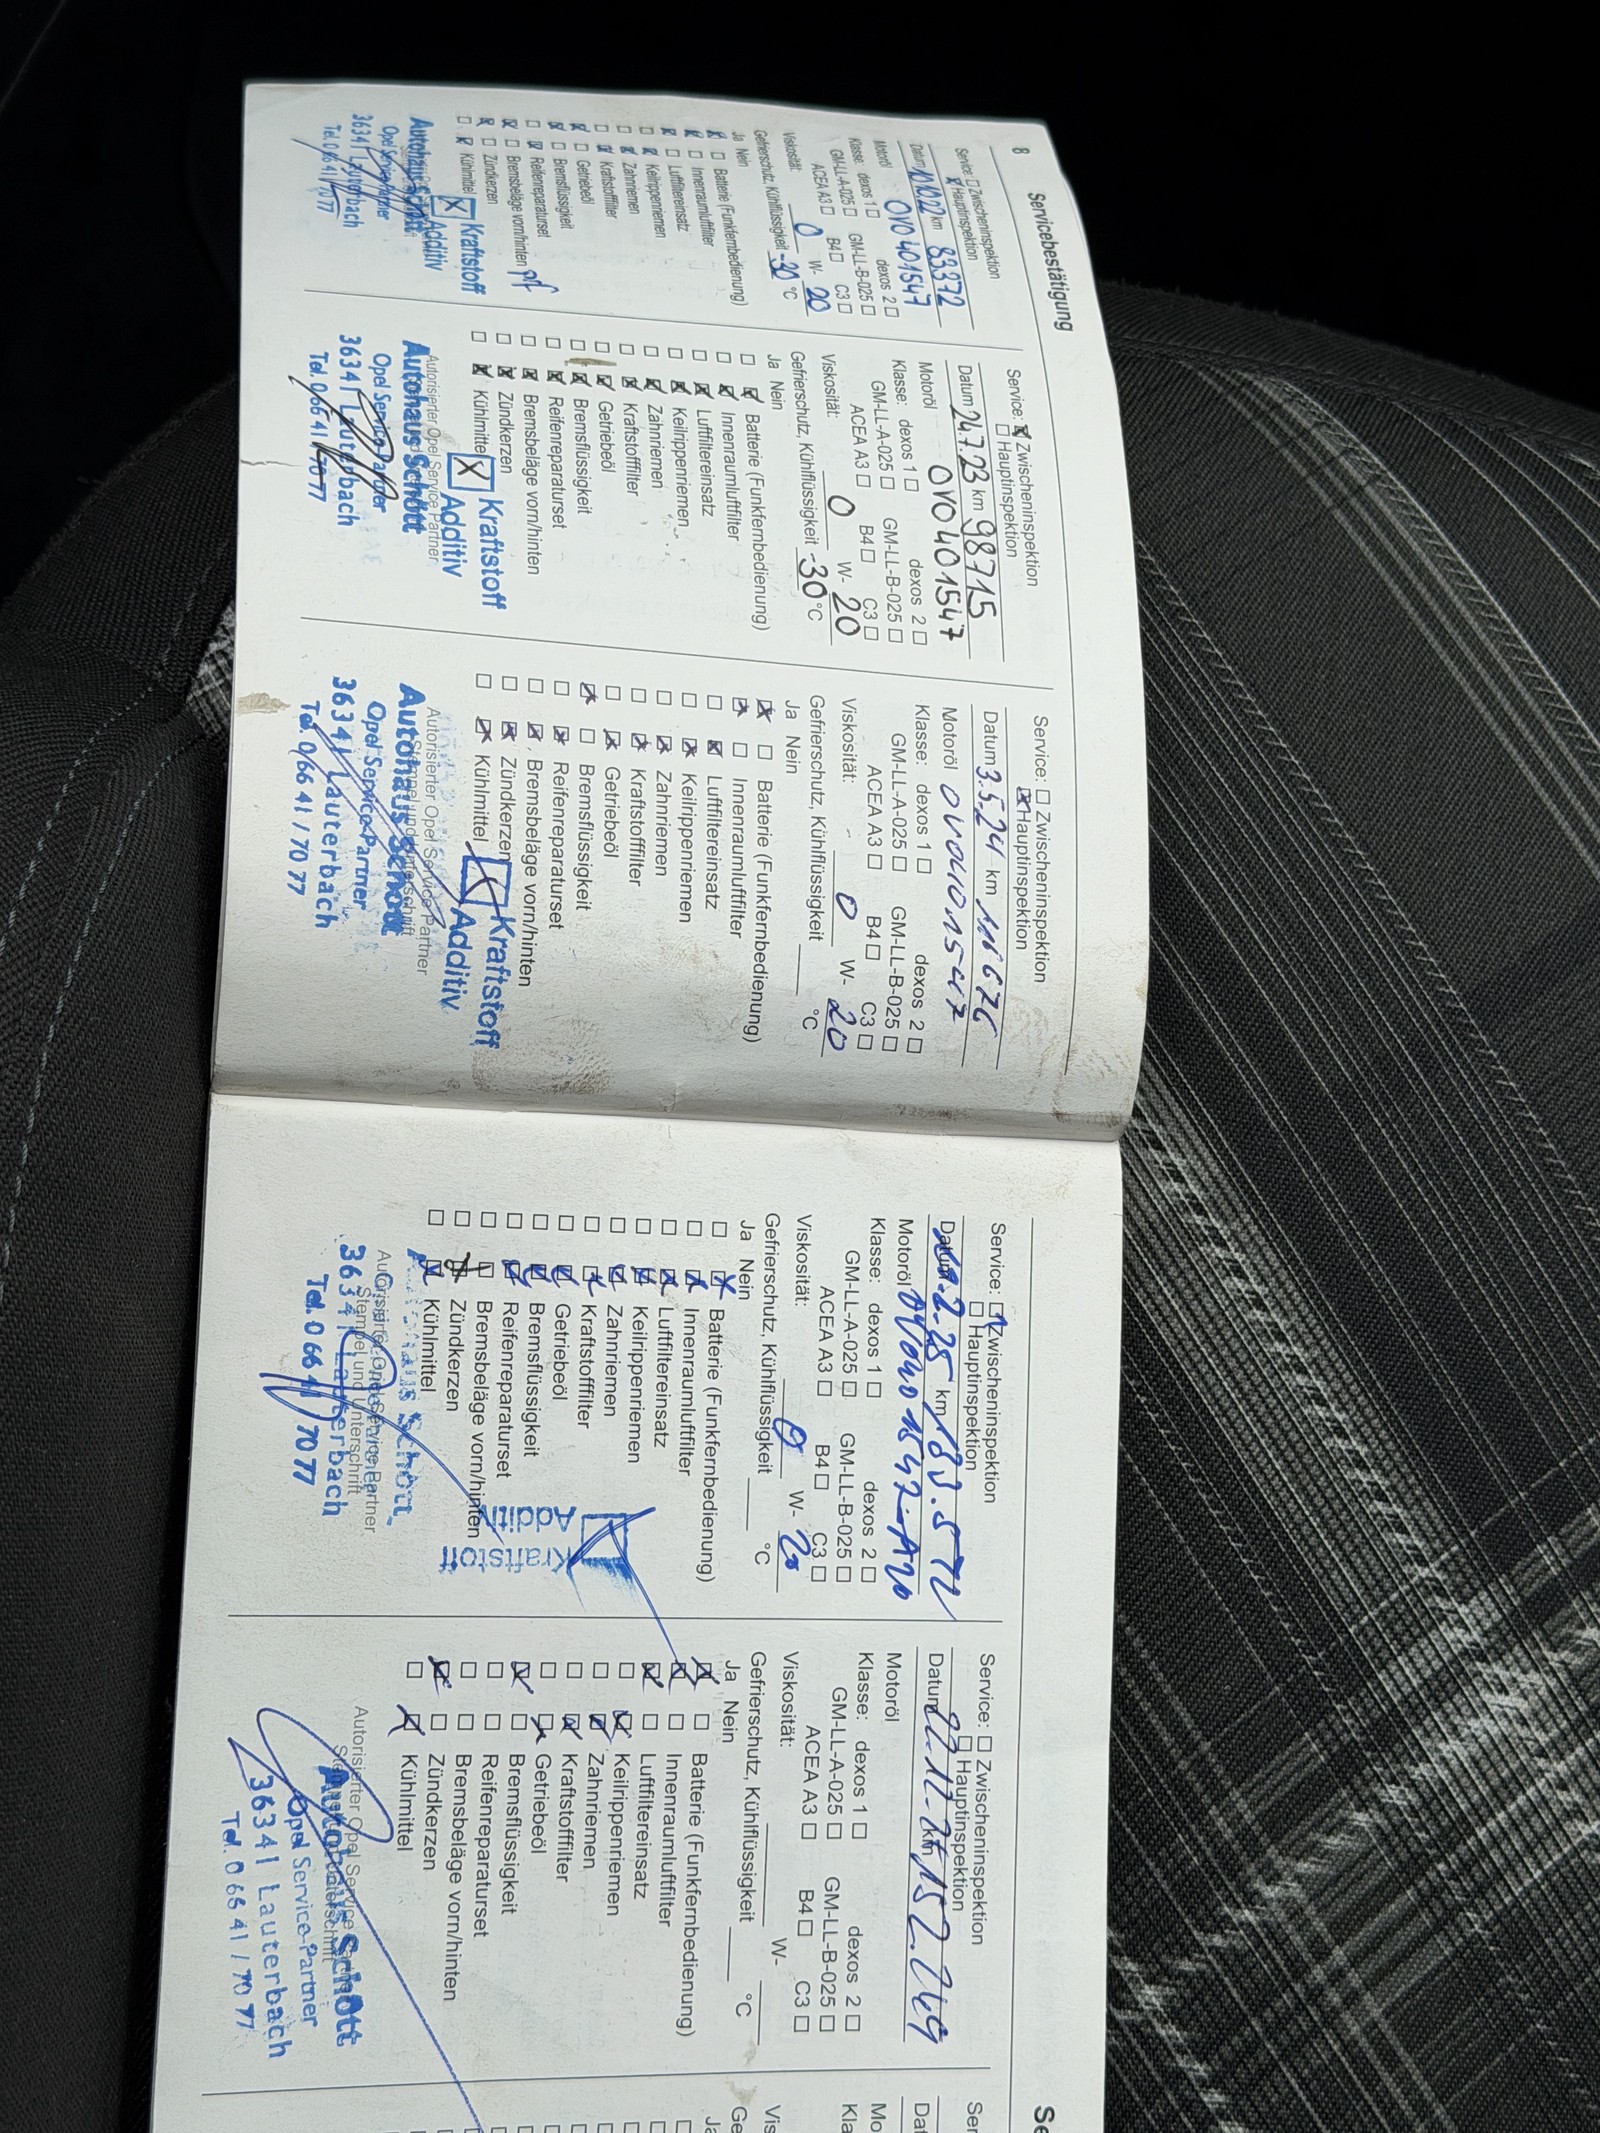 8
Servicebestätigung
Service: ☐ Zwischeninspektion
☒ Hauptinspektion
Datum km 83372
Motoröl OVO401547
Klasse: dexos 1 ☐ dexos 2 ☐
GM-LL-A-025 ☐ GM-LL-B-025 ☐
ACEA A3 ☐ B4 ☐ C3 ☐
Viskosität: 0 W- 20
Gefrierschutz, Kühlflüssigkeit -30 °C
Ja Nein
☒ ☐ Batterie (Funkfernbedienung)
☒ ☐ Innenraumluftfilter
☒ ☐ Luftfiltereinsatz
☐ ☒ Keilrippenriemen
☐ ☒ Zahnriemen
☐ ☒ Kraftstofffilter
☒ ☐ Getriebeöl
☒ ☐ Bremsflüssigkeit
☐ ☒ Reifenreparaturset
☒ ☐ Bremsbeläge vorn/hinten
☒ ☐ Zündkerzen
☐ ☒ Kühlmittel
☒ Kraftstoff
Additiv
Autohaus Schott
Opel Service-Partner
36341 Lauterbach
Tel. 06641/7077
Service: ☒ Zwischeninspektion
☐ Hauptinspektion
Datum 24.7.23 km 98715
Motoröl OVO401547
Klasse: dexos 1 ☐ dexos 2 ☐
GM-LL-A-025 ☐ GM-LL-B-025 ☐
ACEA A3 ☐ B4 ☐ C3 ☐
Viskosität: 0 W- 20
Gefrierschutz, Kühlflüssigkeit -30 °C
Ja Nein
☐ ☒ Batterie (Funkfernbedienung)
☐ ☒ Innenraumluftfilter
☐ ☒ Luftfiltereinsatz
☐ ☒ Keilrippenriemen
☐ ☒ Zahnriemen
☐ ☒ Kraftstofffilter
☐ ☒ Getriebeöl
☐ ☒ Bremsflüssigkeit
☐ ☒ Reifenreparaturset
☐ ☒ Bremsbeläge vorn/hinten
☐ ☒ Zündkerzen
☐ ☒ Kühlmittel
☒ Kraftstoff
Additiv
Autorisierter Opel Service Partner
Autohaus Schott
Opel Service-Partner
36341 Lauterbach
Tel. 06641/7077
Service: ☐ Zwischeninspektion
☒ Hauptinspektion
Datum 3.5.24 km 116676
Motoröl OVO401547
Klasse: dexos 1 ☐ dexos 2 ☐
GM-LL-A-025 ☐ GM-LL-B-025 ☐
ACEA A3 ☐ B4 ☐ C3 ☐
Viskosität: 0 W- 20
Gefrierschutz, Kühlflüssigkeit °C
Ja Nein
☒ ☐ Batterie (Funkfernbedienung)
☒ ☐ Innenraumluftfilter
☐ ☒ Luftfiltereinsatz
☐ ☒ Keilrippenriemen
☐ ☒ Zahnriemen
☐ ☒ Kraftstofffilter
☐ ☒ Getriebeöl
☒ ☐ Bremsflüssigkeit
☐ ☒ Reifenreparaturset
☐ ☒ Bremsbeläge vorn/hinten
☐ ☒ Zündkerzen
☐ ☒ Kühlmittel
☒ Kraftstoff
Additiv
Autorisierter Opel Service Partner
Stempel und Unterschrift
Autohaus Schott
Opel Service-Partner
36341 Lauterbach
Tel. 0/6641/7077
Service: ☒ Zwischeninspektion
☐ Hauptinspektion
Datum .2.25 km 133.572
Motoröl
Klasse: dexos 1 ☐ dexos 2 ☐
GM-LL-A-025 ☐ GM-LL-B-025 ☐
ACEA A3 ☐ B4 ☐ C3 ☐
Viskosität: 0 W- 20
Gefrierschutz, Kühlflüssigkeit °C
Ja Nein
☐ ☒ Batterie (Funkfernbedienung)
☐ ☒ Innenraumluftfilter
☐ ☒ Luftfiltereinsatz
☐ ☒ Keilrippenriemen
☐ ☒ Zahnriemen
☐ ☒ Kraftstofffilter
☐ ☒ Getriebeöl
☐ ☒ Bremsflüssigkeit
☐ ☒ Reifenreparaturset
☐ ☐ Bremsbeläge vorn/hinten
☐ ☒ Zündkerzen
☐ ☒ Kühlmittel
Kraftstoff
Additiv
Autorisierter Opel Service Partner
Stempel und Unterschrift
Autohaus Schott
36341 Lauterbach
Tel. 06641/7077
Service: ☐ Zwischeninspektion
☐ Hauptinspektion
Datum km 152.769
Motoröl
Klasse: dexos 1 ☐ dexos 2 ☐
GM-LL-A-025 ☐ GM-LL-B-025 ☐
ACEA A3 ☐ B4 ☐ C3 ☐
Viskosität: W-
Gefrierschutz, Kühlflüssigkeit °C
Ja Nein
☒ ☐ Batterie (Funkfernbedienung)
☒ ☐ Innenraumluftfilter
☒ ☐ Luftfiltereinsatz
☐ ☒ Keilrippenriemen
☐ ☒ Zahnriemen
☐ ☒ Kraftstofffilter
☐ ☒ Getriebeöl
☒ ☐ Bremsflüssigkeit
☐ ☐ Reifenreparaturset
☐ ☐ Bremsbeläge vorn/hinten
☒ ☐ Zündkerzen
☐ ☒ Kühlmittel
Autorisierter Opel Service
Autohaus Schott
Opel Service-Partner
36341 Lauterbach
Tel. 06641/7077
Se
Ser
Dat
Mo
Kla
Vis
Ge
Ja